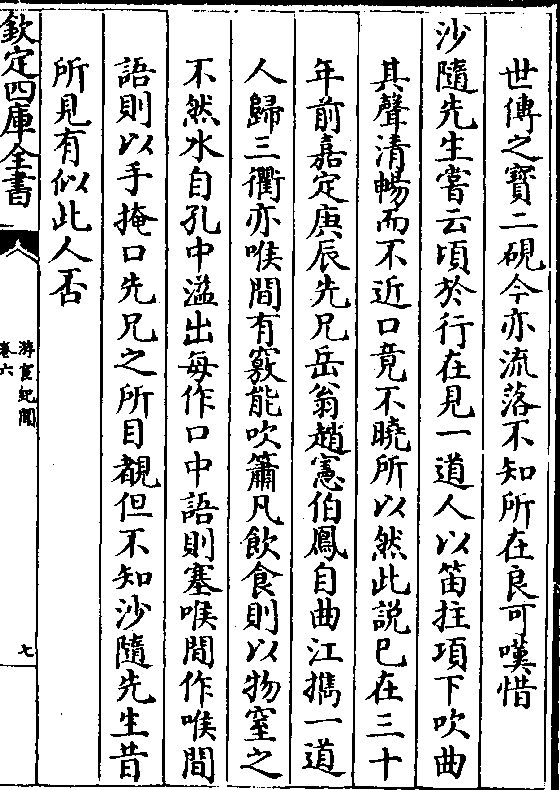 世傳之寳二硯今亦流落不知所在良可嘆惜
沙隨先生嘗云頃於行在見一道人以笛拄項下吹曲
其聲清暢而不近口竟不曉所以然此説已在三十
年前嘉定庚辰先兄岳翁趙憲伯鳳自曲江擕一道
人歸三衢亦喉間有竅能吹簫凡飲食則以物窒之
不然水自孔中溢出每作口中語則塞喉間作喉間
語則以手掩口先兄之所目覩但不知沙隨先生昔
所見有似此人否
欽定四庫全書
游宦紀聞
卷六
七